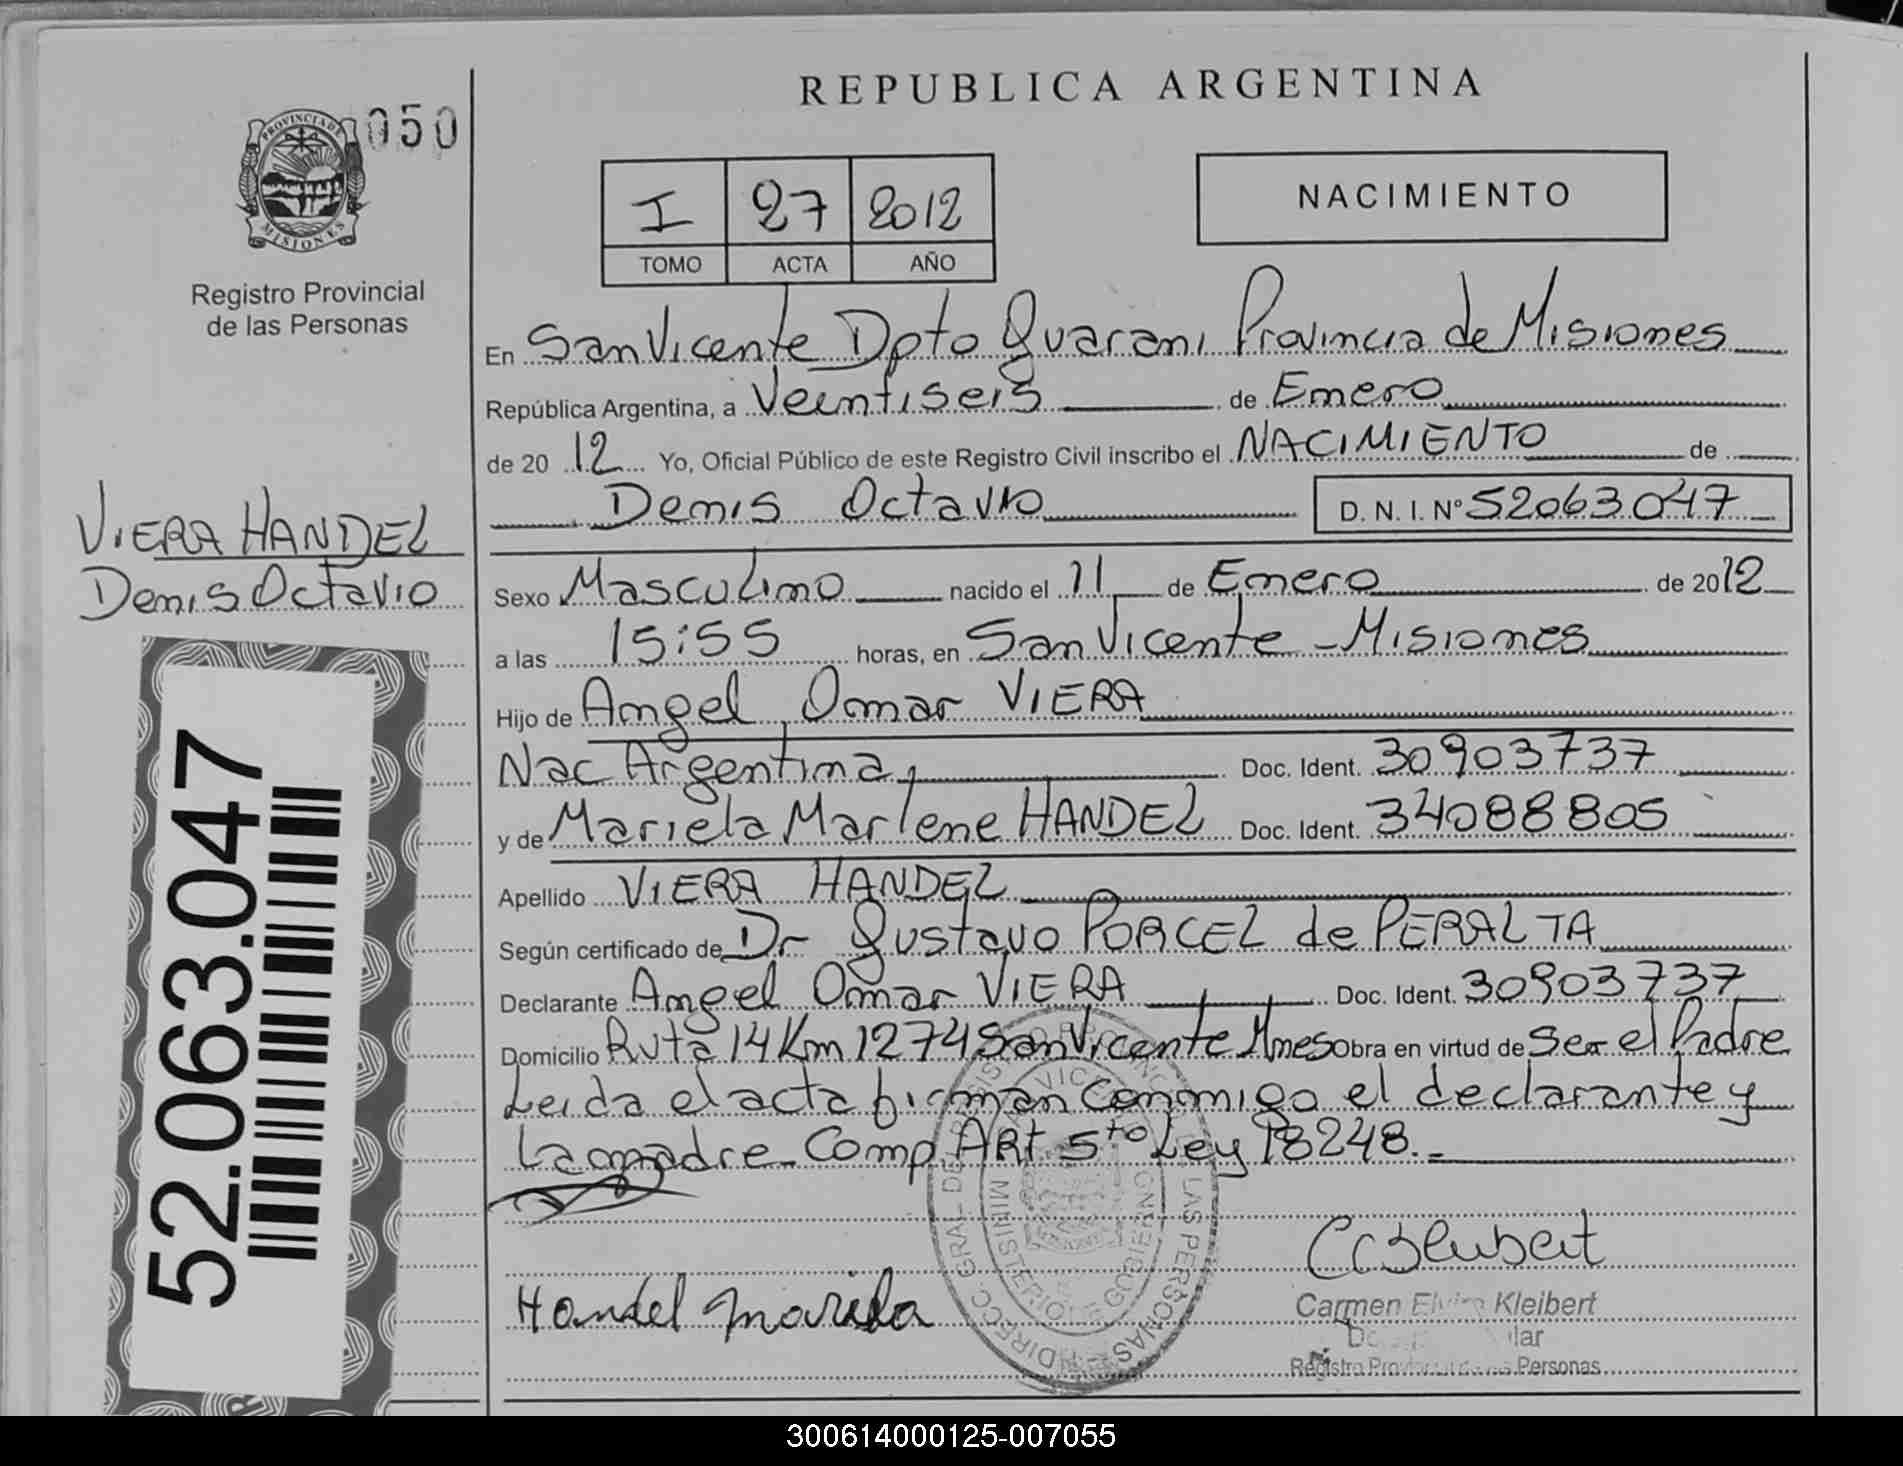 REPUBLICA ARGENTINA
050
PROVINCIA DE
MISIONES
Registro Provincial
de las Personas
I 27 2012
TOMO ACTA AÑO
NACIMIENTO
En San Vicente Dpto Guarani Provincia de Misiones
República Argentina, a Veintiseis de Enero
de 2012 Yo, Oficial Público de este Registro Civil inscribo el NACIMIENTO de
Denis Octavio D.N.I. Nº 52063047
VIERA HANDEL
Denis Octavio
Sexo Masculino nacido el 11 de Enero de 2012
a las 15:55 horas, en San Vicente - Misiones
Hijo de Angel Omar VIERA
Nac Argentina, Doc. Ident. 30903737
y de Mariela Marlene HANDEL Doc. Ident. 34088805
Apellido VIERA HANDEL
Según certificado de Dr Gustavo PORCEL de PERALTA
Declarante Angel Omar VIERA Doc. Ident. 30903737
Domicilio Ruta 14 Km 1274 San Vicente Mnes obra en virtud de Ser el Padre
Leida el acta firman Conmigo el declarante y
la madre - Comp ART 5to Ley 18248.-
52.063.047
Handel Mariela
DIRECC. GRAL DE REGISTRO PROVINCIAL DE LAS PERSONAS
MINISTERIO DE GOBIERNO
Carmen Elvira Kleibert
Registro Provincial de las Personas
300614000125-007055